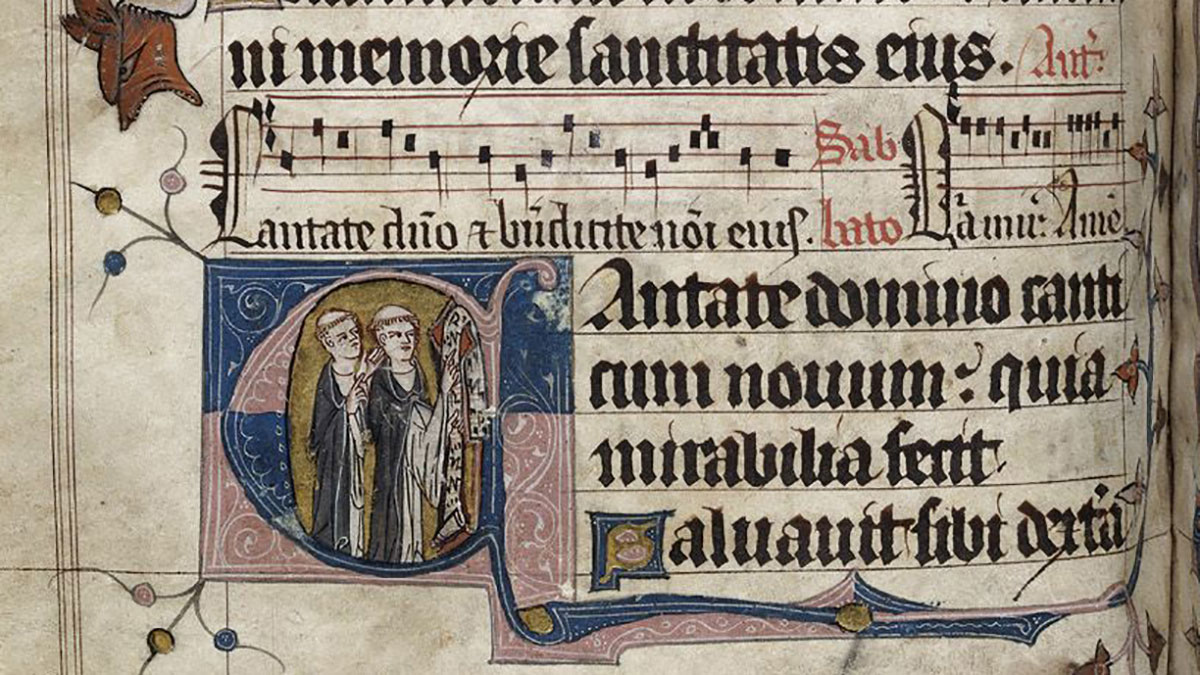 ni memorie sanctitatis eius. Ant̃:
Sab
Cantate dño ⁊ bñdicite nõi eius. bato mir: Amē
CAntate domino canti
cum nouum: quia
mirabilia fecit.
Saluauit sibi dext̃a